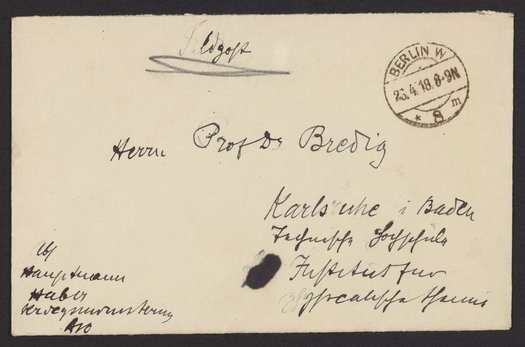 Feldpost
BERLIN W
26.4.18.8-9N
* 8 m
Herrn Prof Dr Bredig
Karlsruhe i Baden
Technische Hochschule
Institut für
physicalische Chemie
Abs
Hauptmann
Haber
Kriegsministerium